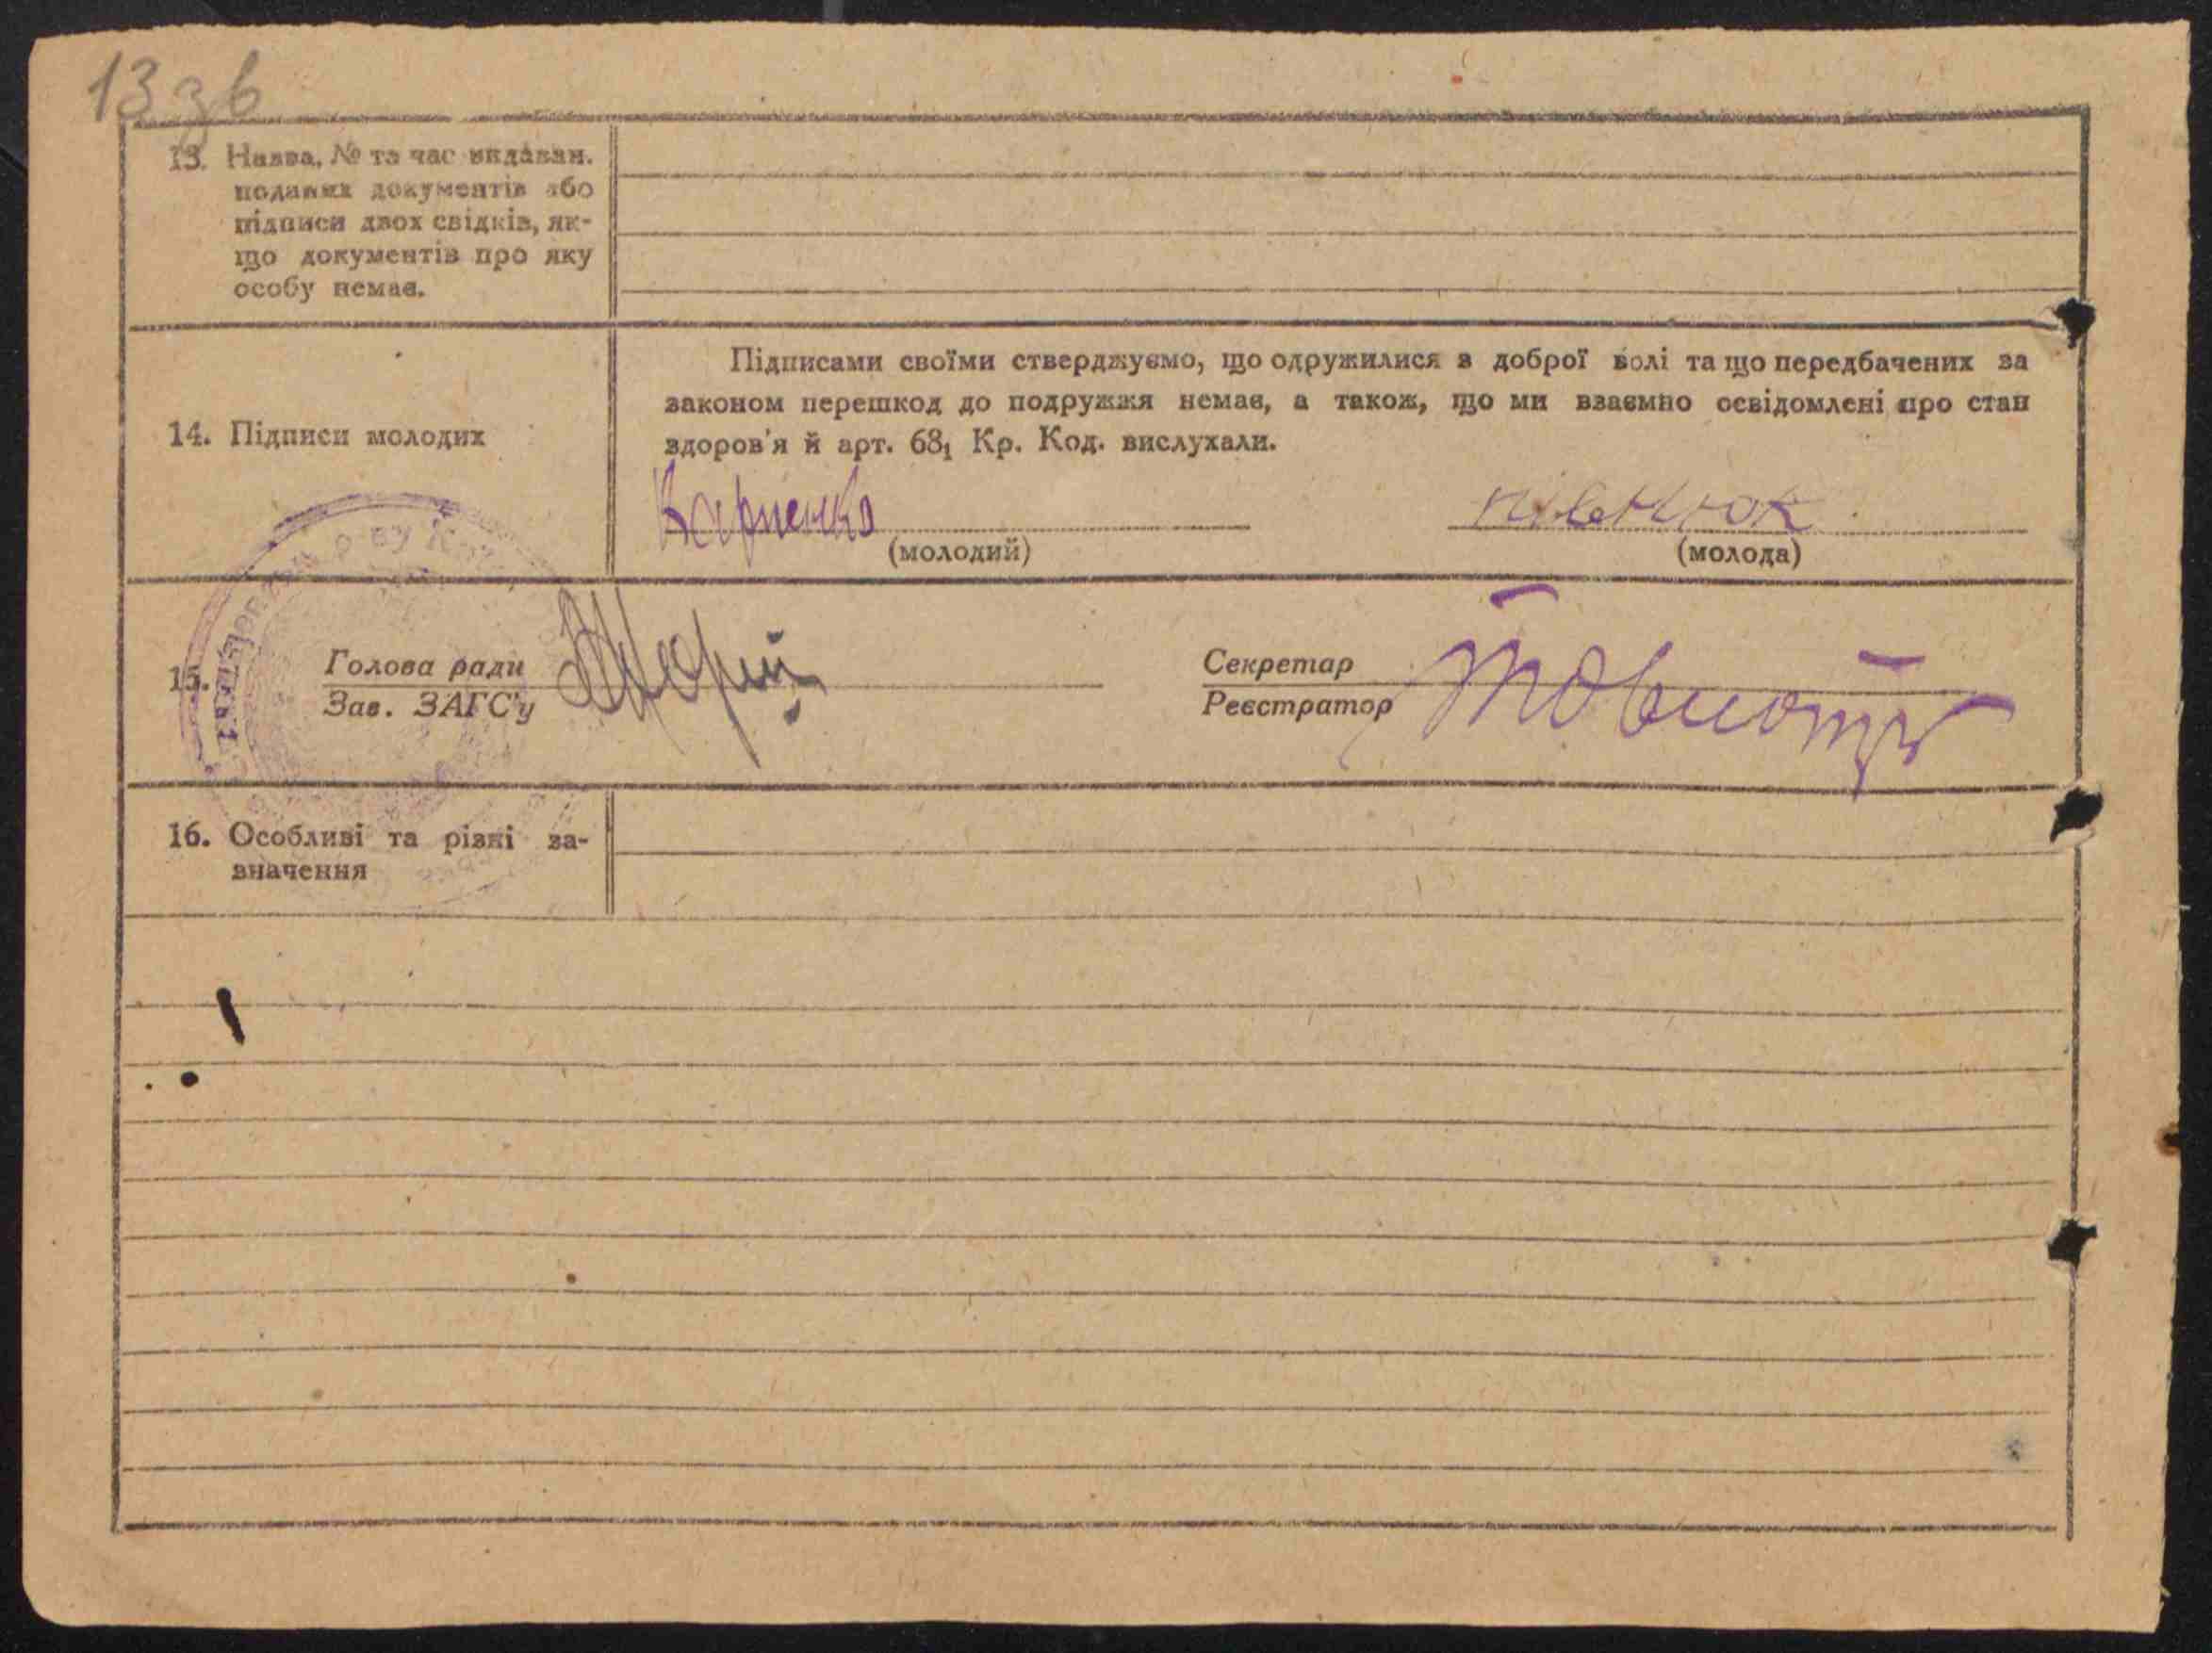 13 зв
13. Назва, № та час видаван.
поданих документів або
підписи двох свідків, як-
що документів про яку
особу немає.
14. Підписи молодих
Підписами своїми стверджуємо, що одружилися з доброї волі та що передбачених за
законом перешкод до подружжя немає, а також, що ми взаємно освідомлені про стан
здоров'я й арт. 68₁ Кр. Код. вислухали.
Карпенко
півенюк
(молодий)
(молода)
15.
Голова ради
Зав. ЗАГС'у
Секретар
Реєстратор
16. Особливі та різні за-
значення